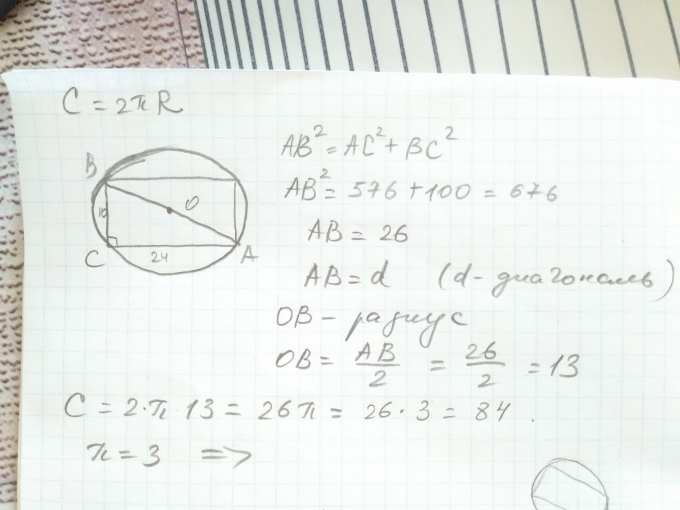 C = 2πR
AB² = AC² + BC²
AB² = 576 + 100 = 676
AB = 26
AB = d (d - диагональ)
OB - радиус
OB = AB/2 = 26/2 = 13
B
10
O
C
24
A
C = 2·π 13 = 26π = 26·3 = 84.
π = 3 =>